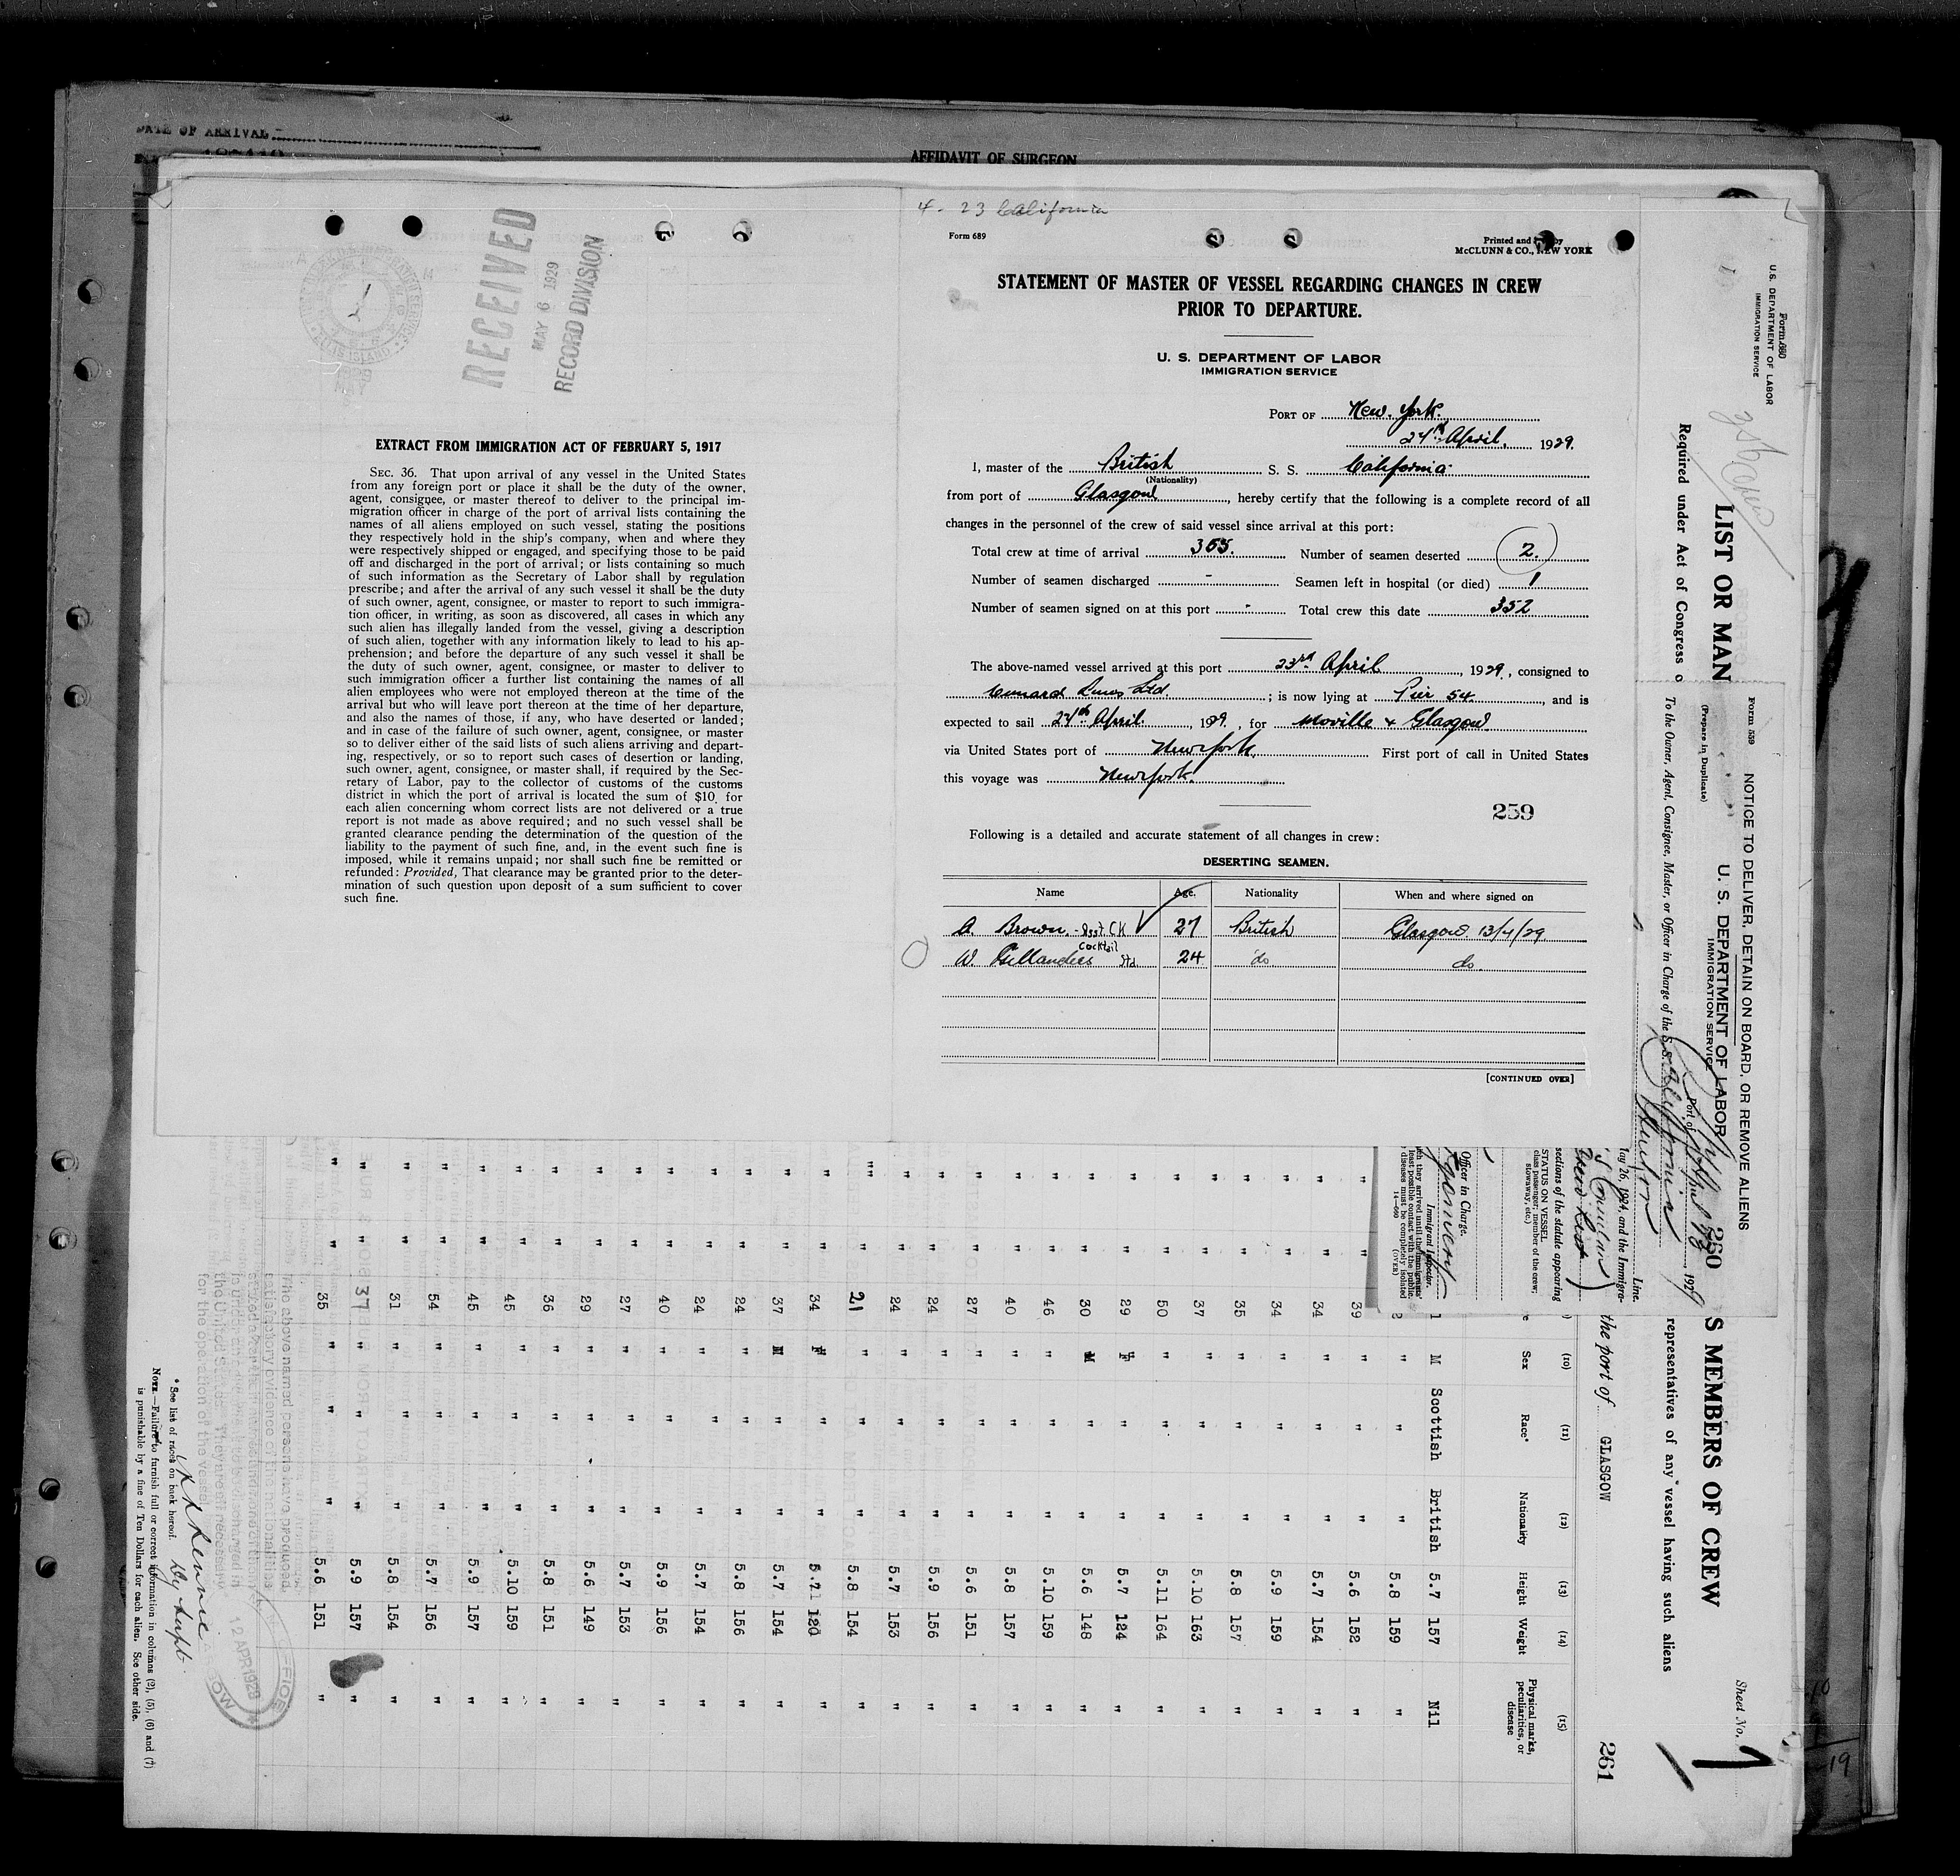 DATE OF ARRIVAL
AFFIDAVIT OF SURGEON
RECEIVED
MAY 6 1929
RECORD DIVISION
ELLIS ISLAND
EXTRACT FROM IMMIGRATION ACT OF FEBRUARY 5, 1917
SEC. 36. That upon arrival of any vessel in the United States
from any foreign port or place it shall be the duty of the owner,
agent, consignee, or master thereof to deliver to the principal im-
migration officer in charge of the port of arrival lists containing the
names of all aliens employed on such vessel, stating the positions
they respectively hold in the ship's company, when and where they
were respectively shipped or engaged, and specifying those to be paid
off and discharged in the port of arrival; or lists containing so much
of such information as the Secretary of Labor shall by regulation
prescribe; and after the arrival of any such vessel it shall be the duty
of such owner, agent, consignee, or master to report to such immigra-
tion officer, in writing, as soon as discovered, all cases in which any
such alien has illegally landed from the vessel, giving a description
of such alien, together with any information likely to lead to his ap-
prehension; and before the departure of any such vessel it shall be
the duty of such owner, agent, consignee, or master to deliver to
such immigration officer a further list containing the names of all
alien employees who were not employed thereon at the time of the
arrival but who will leave port thereon at the time of her departure,
and also the names of those, if any, who have deserted or landed;
and in case of the failure of such owner, agent, consignee, or master
so to deliver either of the said lists of such aliens arriving and depart-
ing, respectively, or so to report such cases of desertion or landing,
such owner, agent, consignee, or master shall, if required by the Sec-
retary of Labor, pay to the collector of customs of the customs
district in which the port of arrival is located the sum of $10 for
each alien concerning whom correct lists are not delivered or a true
report is not made as above required; and no such vessel shall be
granted clearance pending the determination of the question of the
liability to the payment of such fine, and, in the event such fine is
imposed, while it remains unpaid; nor shall such fine be remitted or
refunded: Provided, That clearance may be granted prior to the deter-
mination of such question upon deposit of a sum sufficient to cover
such fine.
4-23 California
Form 689
Printed and by
McCLUNN & CO., NEW YORK
STATEMENT OF MASTER OF VESSEL REGARDING CHANGES IN CREW
PRIOR TO DEPARTURE.
U. S. DEPARTMENT OF LABOR
IMMIGRATION SERVICE
PORT OF New York.
24th April, 1929.
I, master of the British S. S. California
(Nationality)
from port of Glasgow, hereby certify that the following is a complete record of all
changes in the personnel of the crew of said vessel since arrival at this port:
Total crew at time of arrival 355. Number of seamen deserted 2.
Number of seamen discharged - Seamen left in hospital (or died) 1
Number of seamen signed on at this port - Total crew this date 352
The above-named vessel arrived at this port 23rd April, 1929, consigned to
Cunard Lines Ltd.; is now lying at Pier 54, and is
expected to sail 24th April, 1929, for Moville & Glasgow
via United States port of New York. First port of call in United States
this voyage was New York.
259
Following is a detailed and accurate statement of all changes in crew:
DESERTING SEAMEN.
Name Age. Nationality When and where signed on
A. Brown. - Asst CK 27 British Glasgow 13/4/29
Cocktail
W. Gillanders Std. 24 do do.
[CONTINUED OVER]
Form 680
U.S. DEPARTMENT OF LABOR
IMMIGRATION SERVICE
LIST OR MAN
Required under Act of Congress o
Form 559
(Prepare in Duplicate)
NOTICE TO DELIVER, DETAIN ON BOARD, OR REMOVE ALIENS
U. S. DEPARTMENT OF LABOR
IMMIGRATION SERVICE
260
Port of
192 9
To the Owner, Agent, Consignee, Master, or Officer in Charge of the S. S. California
Line.
ay 26, 1924, and the Immigra-
sections of the statute appearing
STATUS ON VESSEL
class passenger; member of the crew;
stowaway, etc.)
Officer in Charge.
Immigrant Inspector.
ch they arrived until the immigrants'
least possible contact with the public.
diseases must be completely isolated
14—660 (OVER)
S MEMBERS OF CREW
representatives of any vessel having such aliens
Sheet No. 1
the port of GLASGOW
261
(10) (11) (12) (13) (14) (15)
Sex Race* Nationality Height Weight Physical marks, peculiarities, or disease
M Scottish British 5.7 157 Nil
" " " 5.8 159 "
39 " " " 5.6 152 "
34 " " " 5.7 154 "
34 " " " 5.9 159 "
35 " " " 5.8 157 "
37 " " " 5.10 163 "
50 " " " 5.11 164 "
29 F " " 5.7 124 "
30 M " " 5.6 148 "
46 " " " 5.10 159 "
40 " " " 5.8 157 "
27 " " " 5.6 151 "
24 " " " 5.9 156 "
24 " " " 5.7 153 "
21 " " " 5.8 154 "
34 F " "
37 M " " 5.7 154 "
24 " " " 5.8 156 "
24 " " " 5.7 154 "
40 " " " 5.9 156 "
27 " " " 5.7 153 "
29 " " " 5.6 149 "
36 " " " 5.8 151 "
45 " " " 5.10 159 "
45 " " " 5.9 157 "
54 " " " 5.7 156 "
31 " " " 5.8 154 "
37 " " " 5.9 157 "
35 " " " 5.6 151 "
* See list of races on back hereof.
NOTE.—Failure to furnish full or correct information in columns (2), (5), (6) and (7)
is punishable by a fine of Ten Dollars for each alien. See other side.